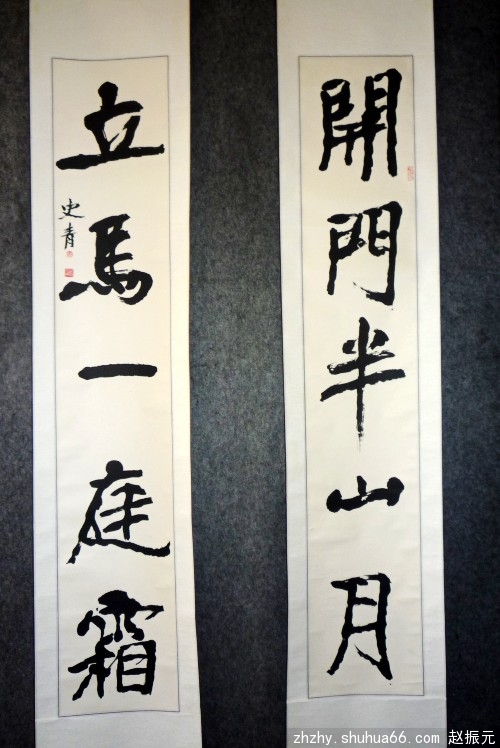 開門半山月
立馬一庭霜
史青
zhzhy.shuhua66.com 赵振元